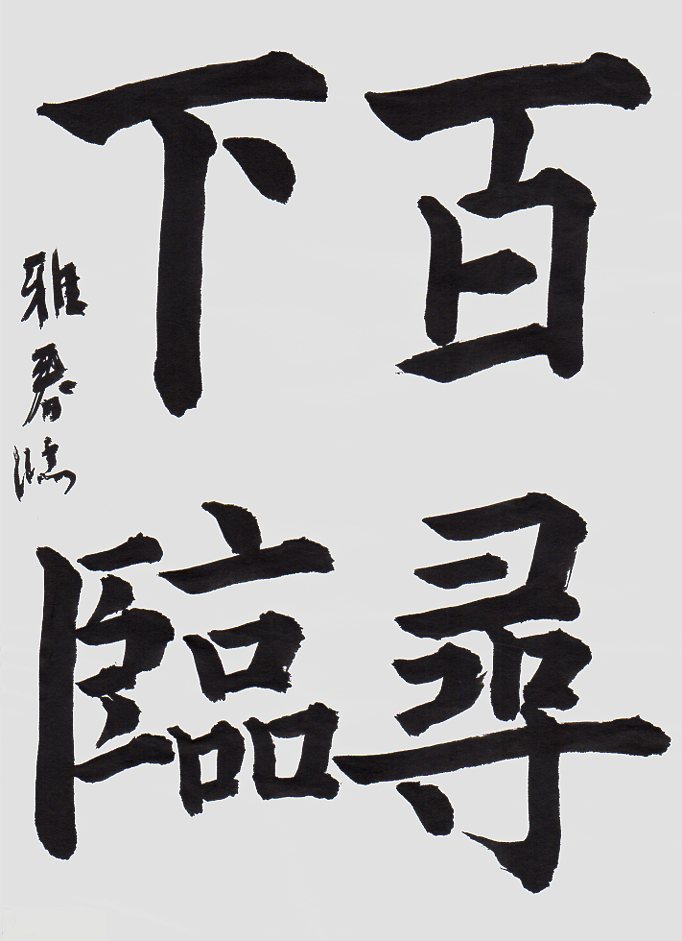 百尋
下臨
雅春臨